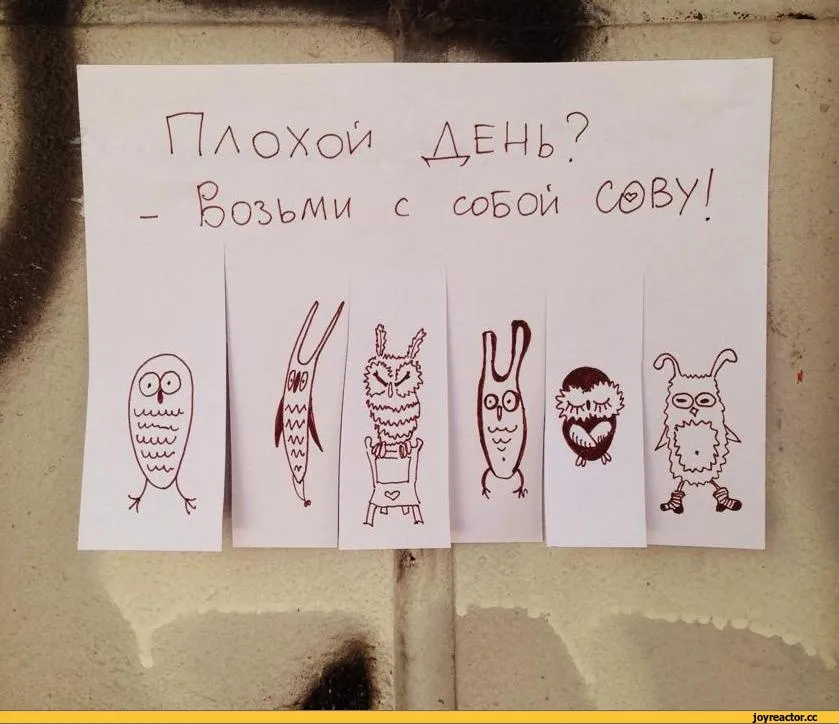 Плохой ДЕНЬ?
- Возьми с собой СОВУ!
joyreactor.cc